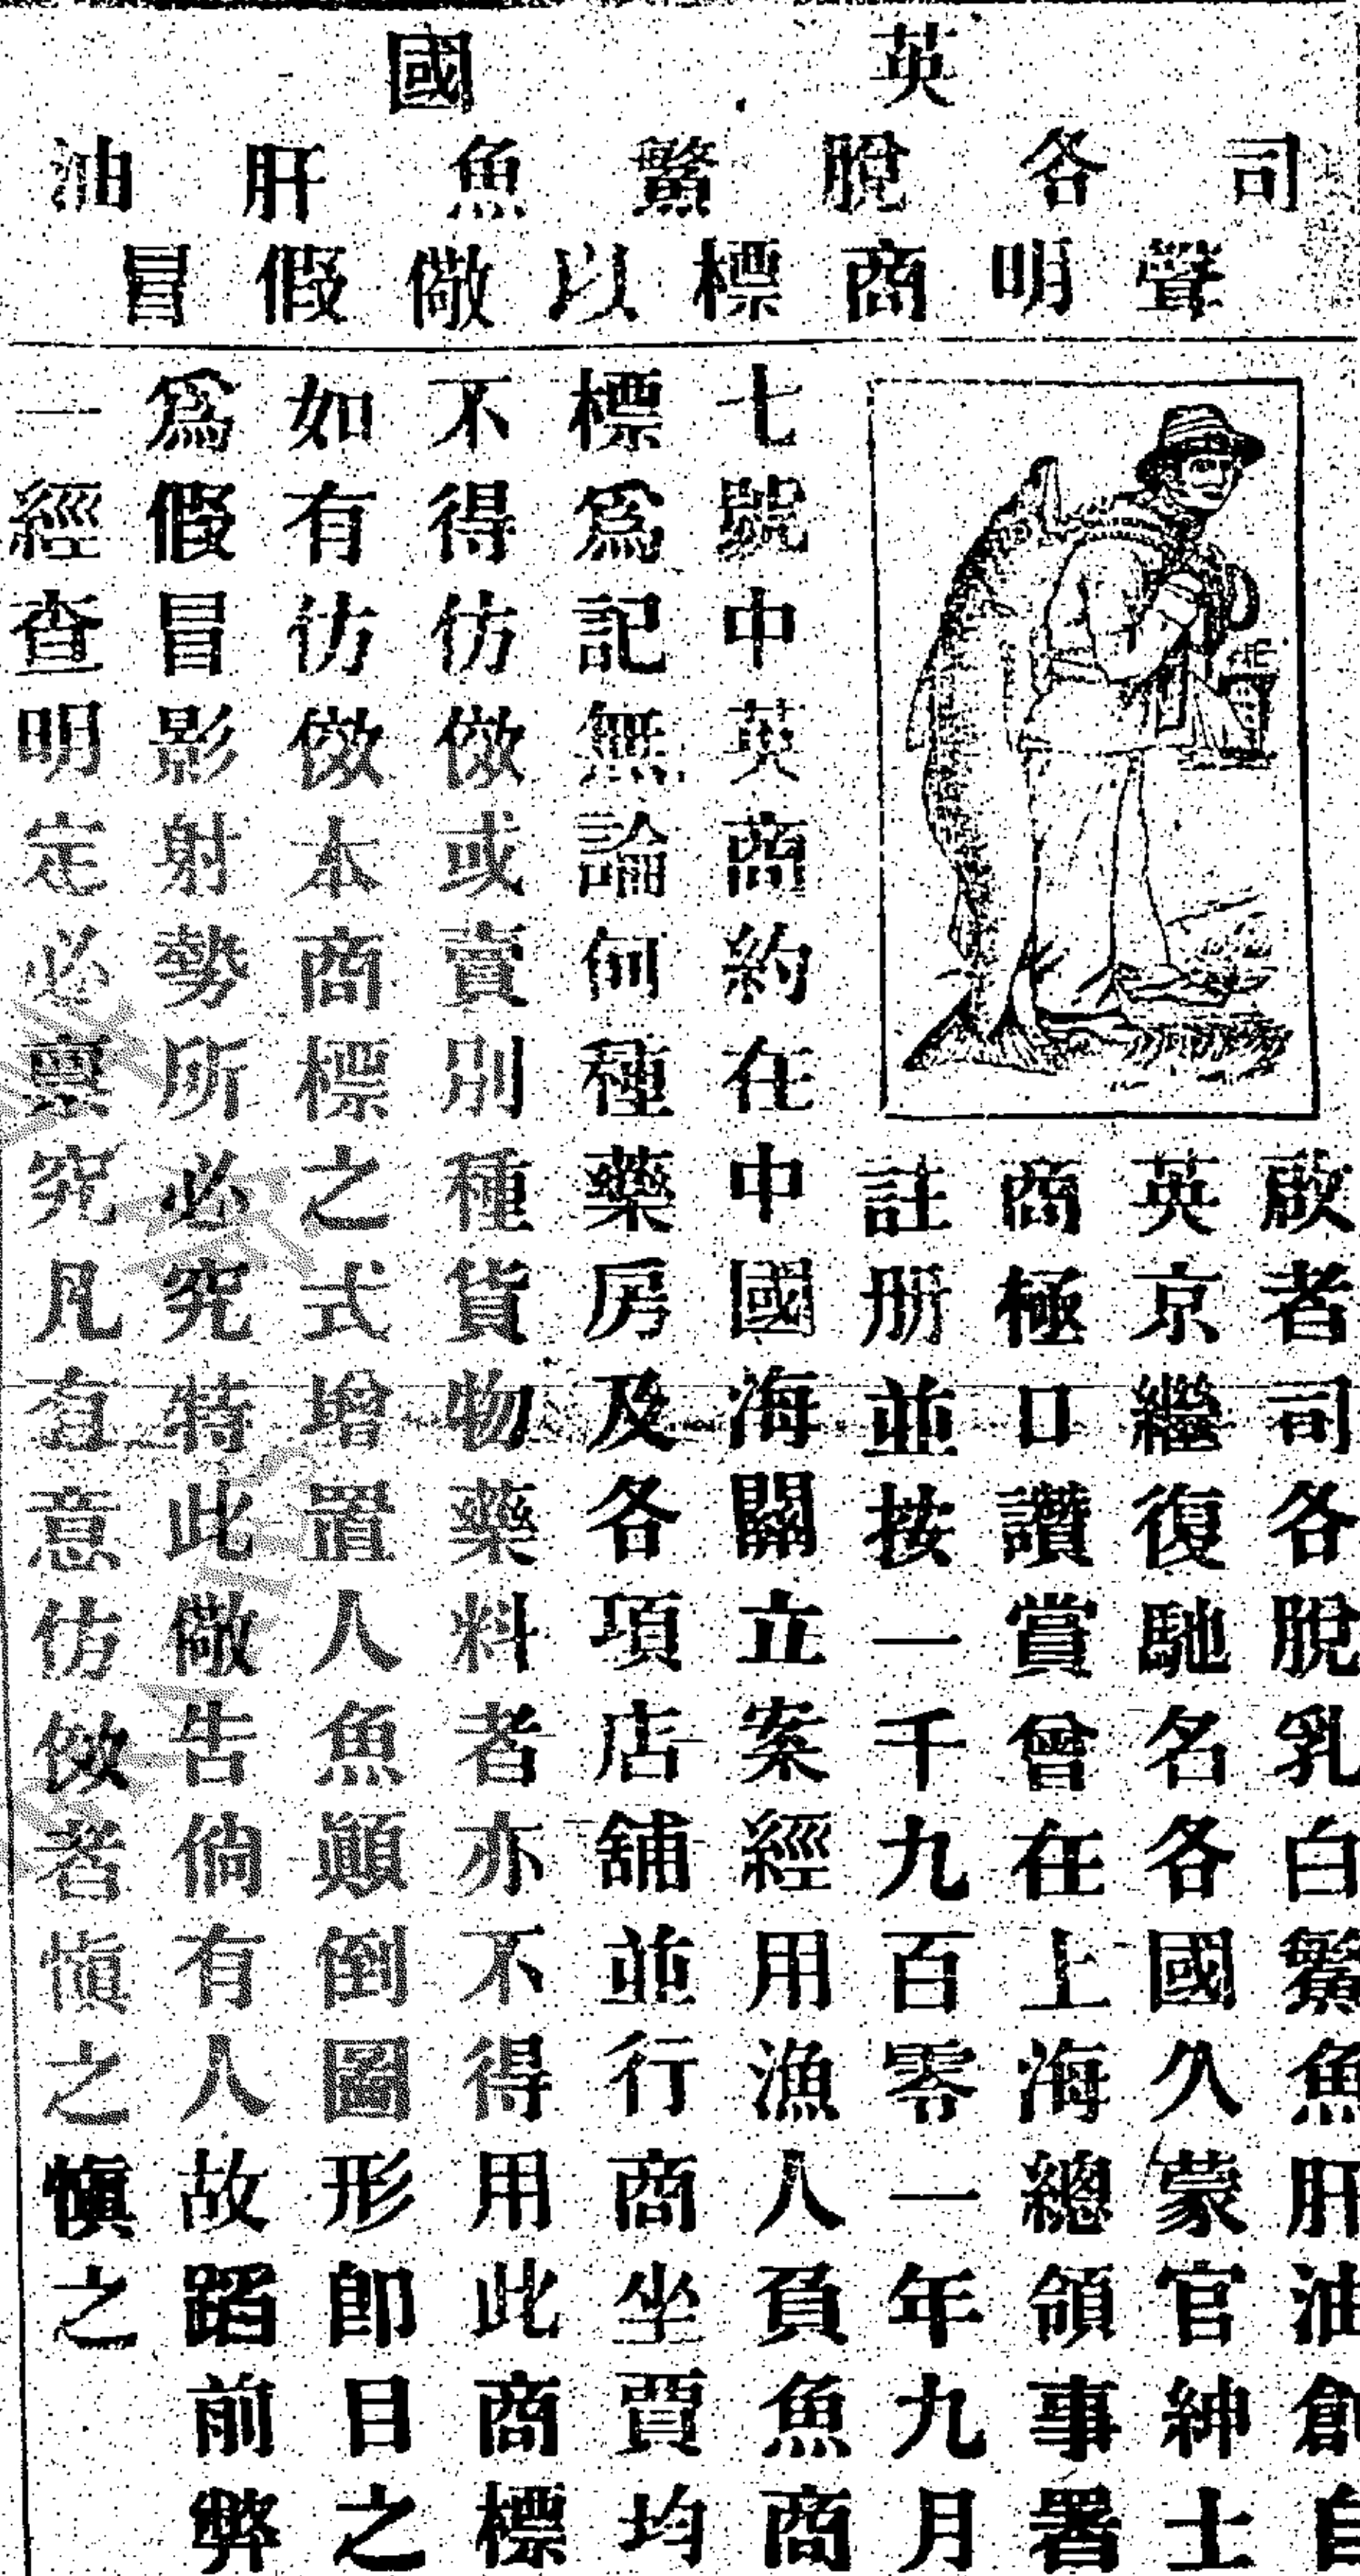 英國
司各脫鱉魚肝油
聲明商標以儆假冒
啟者司各脫乳白鱉魚肝油創自
英京繼復馳名各國久蒙官紳士
商極口讚賞曾在上海總領事署
註册並按一千九百零一年九月
七號中英商約在中國海關立案經用漁人負魚商
標爲記無論何種藥房及各項店舖並行商坐賈均
不得仿傚或賣別種貨物藥料者亦不得用此商標
如有仿傚本商標之式增置人魚顚倒圖形卽目之
爲假冒影射勢所必究特此儆告倘有人故蹈前弊
一經查明定必禀究凡有意仿傚者愼之愼之